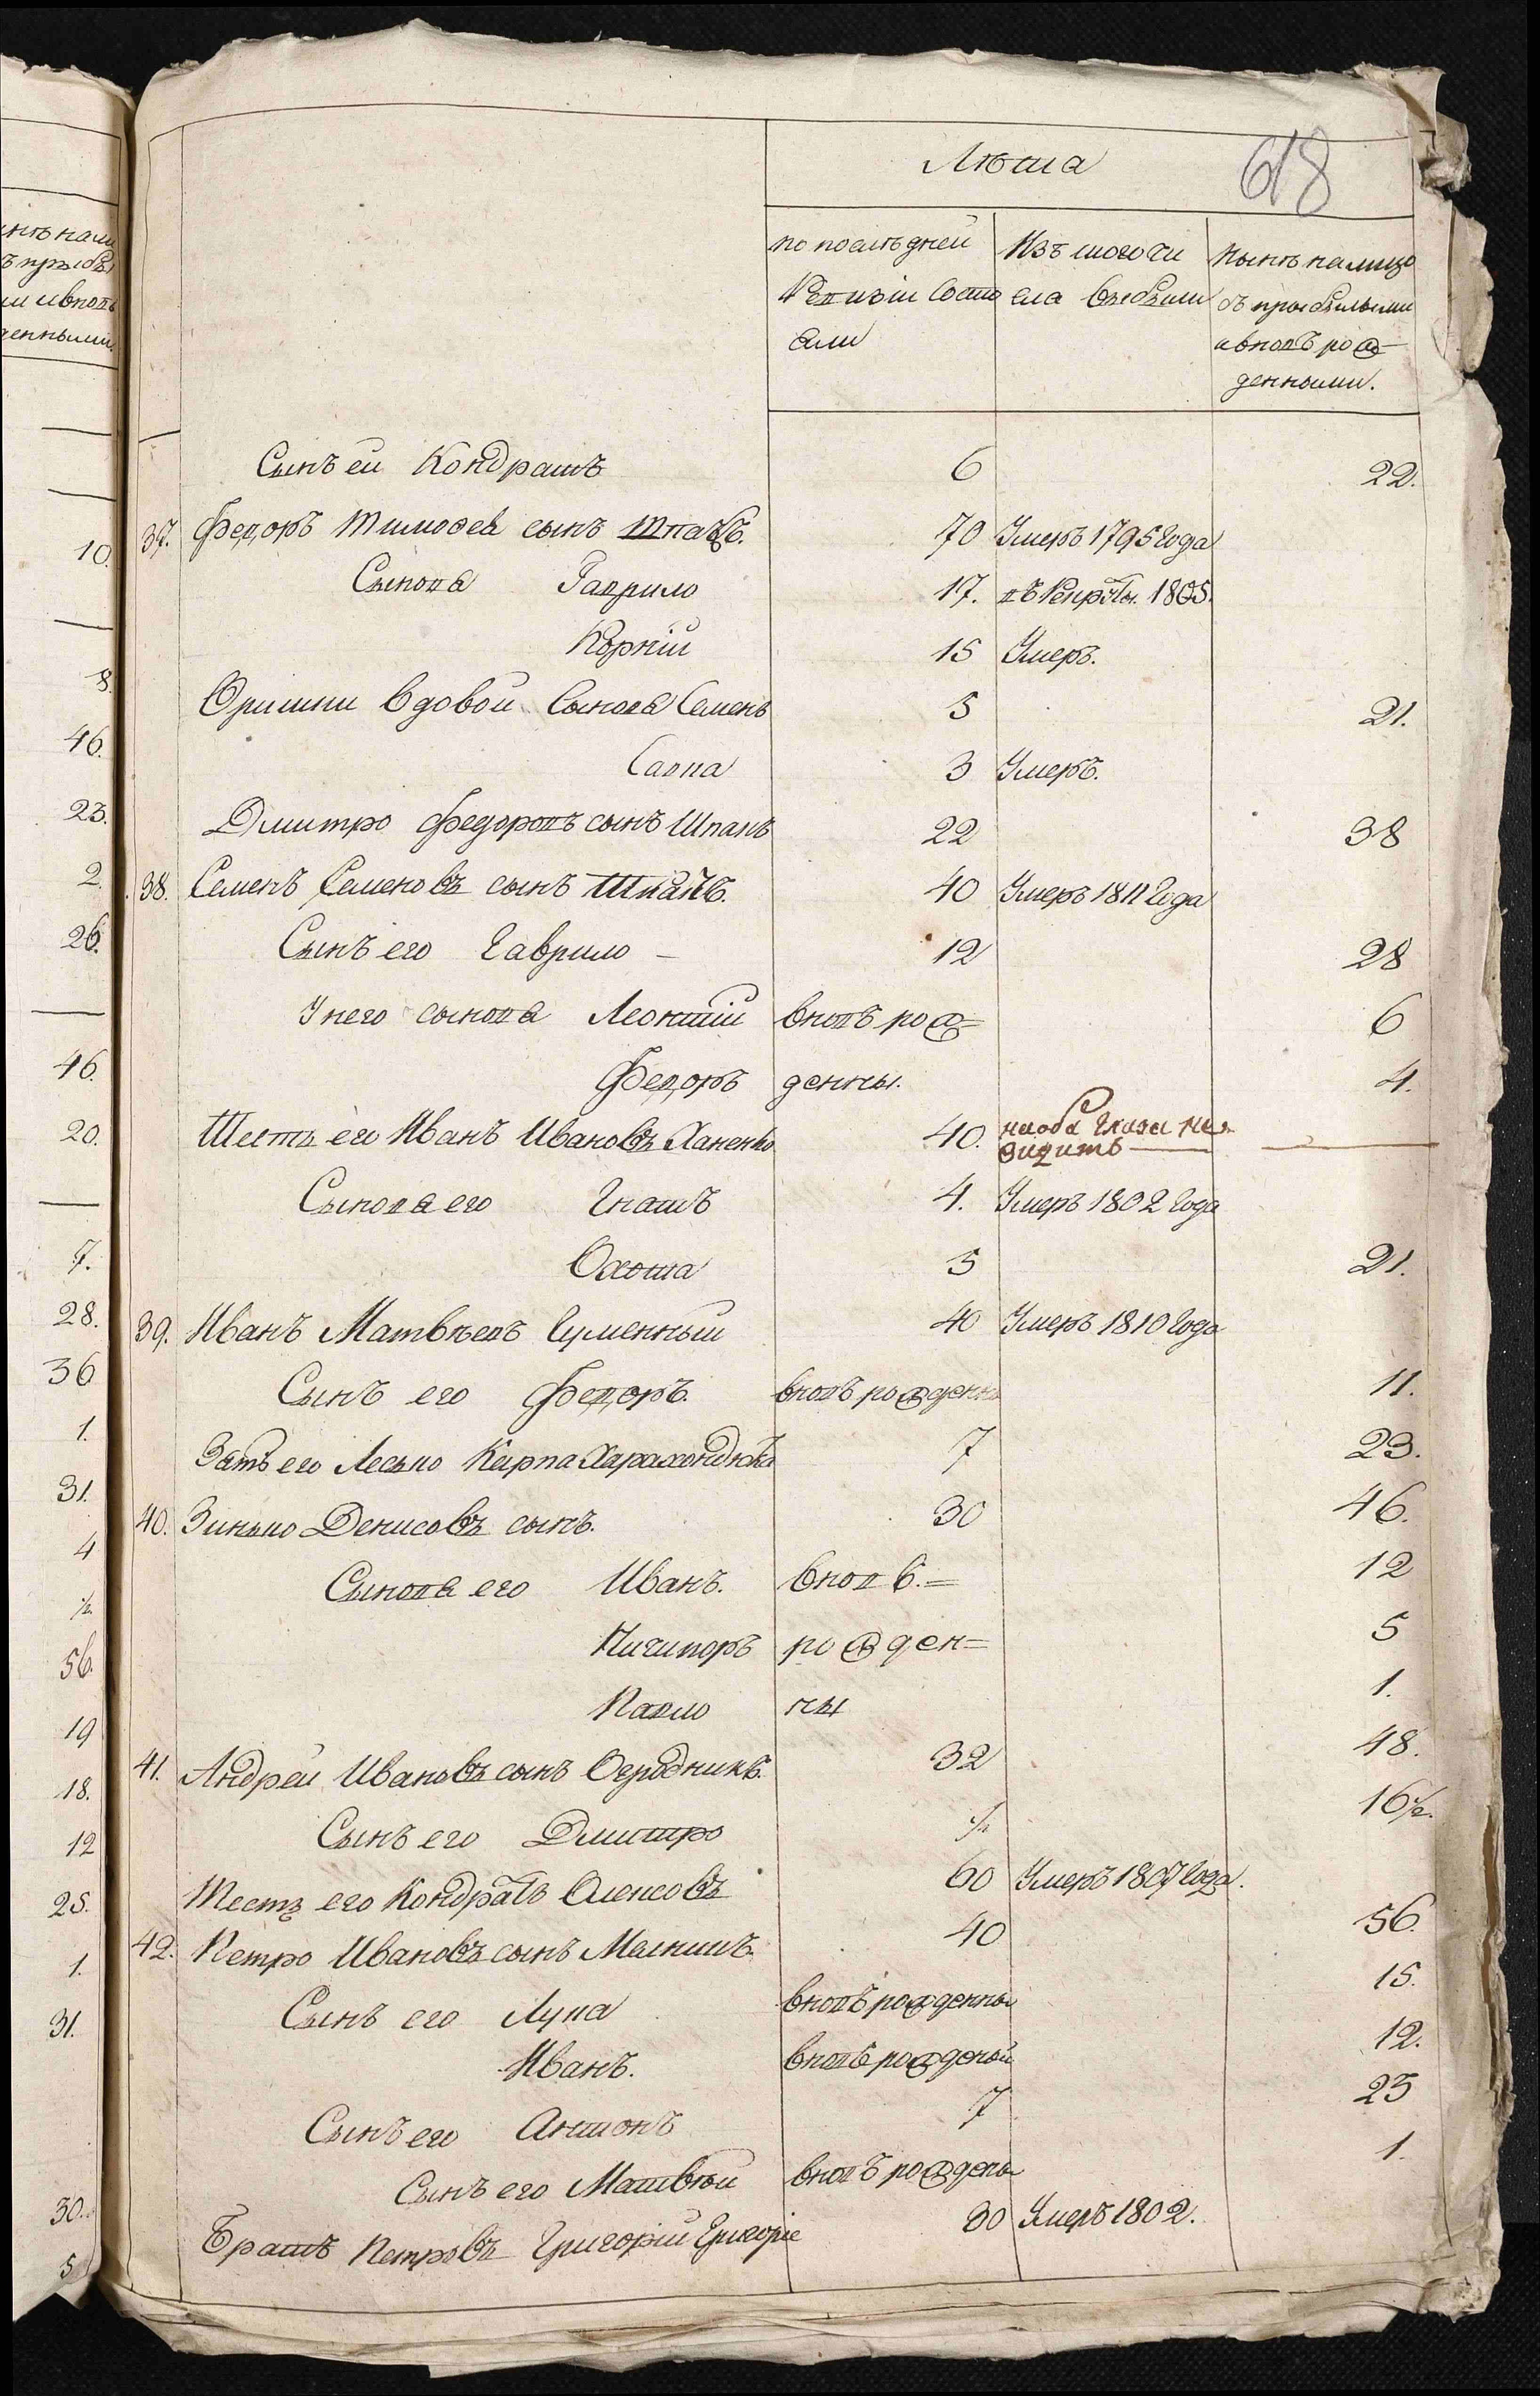 Лѣта
618
по послѣдней Ревизіи Состо
яли
Изъ того чи
сла Выбыли
Нынѣ налицо
съ прибылыми
и вновь рож
денными.
Сынъ еи Кондратъ 6 22.
37. Федоръ Тимофеевъ сынъ Шпакъ. 70 Умеръ 1795 Года
Сынова Гаврило 17. въ Рекруты. 1805.
Корній 15 Умеръ.
Оришки Вдовои Сынова Семенъ 5 21.
Савка 3 Умеръ.
Дмитро Федоровъ сынъ Шпакъ 22 38
38. Семенъ Семеновъ сынъ Шпакъ. 40 Умеръ 1811 Года
Сынъ его Гаврило 12 28
У него сынова Леонтій вновь рож= 6
Федоръ денны. 4.
Тесть его Иванъ Ивановъ Ханенко 40. на оба Глаза не
видитъ
Сынова его Гнатъ 4. Умеръ 1802 Года
Охтома 5 21.
39. Иванъ Матвѣевъ Гуменный 40 Умеръ 1810 Года
Сынъ его Федоръ. вновь рожденъ 11.
Зять его Лесько Карпа 7 23.
40. Зинько Денисовъ сынъ. 30 46.
Сынова его Иванъ. Вновь.= 12
Ничипоръ рожден= 5
Павло ны 1.
41. Андрей Ивановъ сынъ Огродникъ. 32 48.
Сынъ его Дмитро 1/2 16 1/2.
Тесть его Кондратъ Олексовъ 60 Умеръ 1807 Года.
42. Петро Ивановъ сынъ 40 56.
Сынъ его Лука вновь рожденны 15.
Иванъ. вновь рожденой 12.
Сынъ его Антонъ 7 23
Сынъ его Матвѣй вновь рожденъ 1.
Братъ Петровъ Григорій Григоріе 30 Умеръ 1802.
10.
8.
46.
23.
2.
26.
46.
20.
7.
28.
36
1.
31.
4
1/2
56.
19
18.
12
25.
1.
31.
30.
5